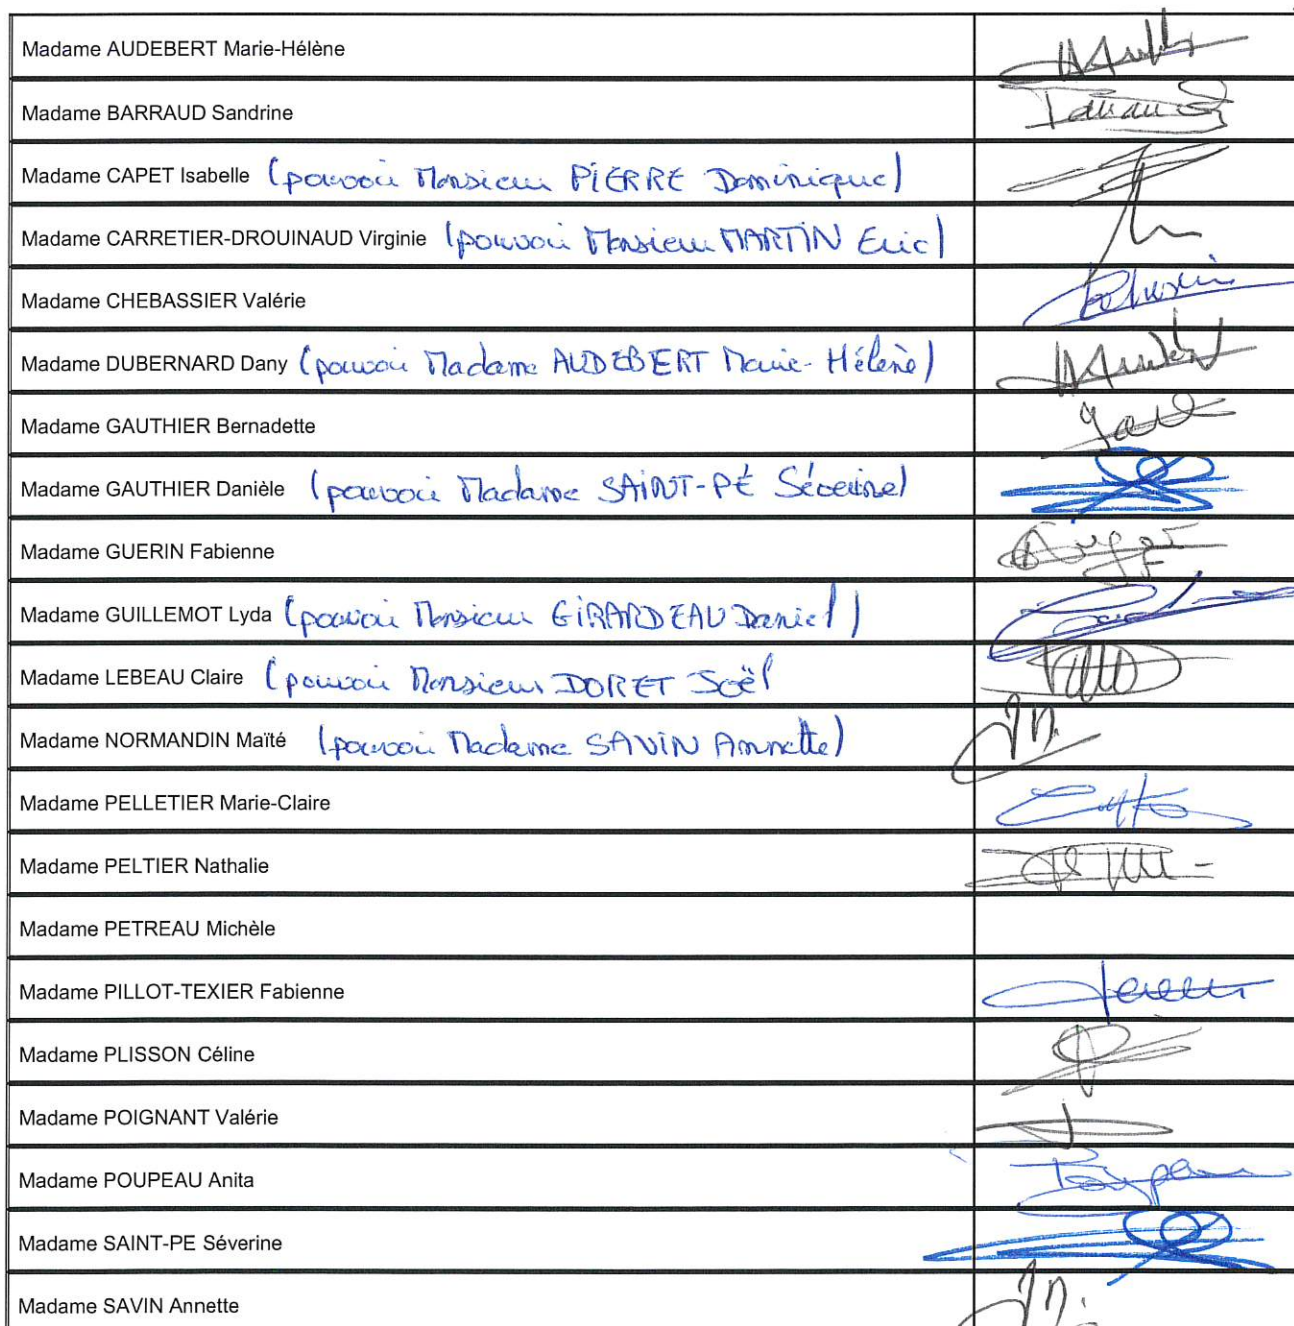 Madame AUDEBERT Marie-Hélène
Madame BARRAUD Sandrine
Madame CAPET Isabelle (pouvoir Monsieur PIERRE Dominique)
Madame CARRETIER-DROUINAUD Virginie (pouvoir Monsieur MARTIN Eric)
Madame CHEBASSIER Valérie
Madame DUBERNARD Dany (pouvoir Madame AUDEBERT Marie-Hélène)
Madame GAUTHIER Bernadette
Madame GAUTHIER Danièle (pouvoir Madame SAINT-PÉ Séverine)
Madame GUERIN Fabienne
Madame GUILLEMOT Lyda (pouvoir Monsieur GIRARDEAU Daniel)
Madame LEBEAU Claire (pouvoir Monsieur DORET Joël
Madame NORMANDIN Maïté (pouvoir Madame SAVIN Annette)
Madame PELLETIER Marie-Claire
Madame PELTIER Nathalie
Madame PETREAU Michèle
Madame PILLOT-TEXIER Fabienne
Madame PLISSON Céline
Madame POIGNANT Valérie
Madame POUPEAU Anita
Madame SAINT-PE Séverine
Madame SAVIN Annette